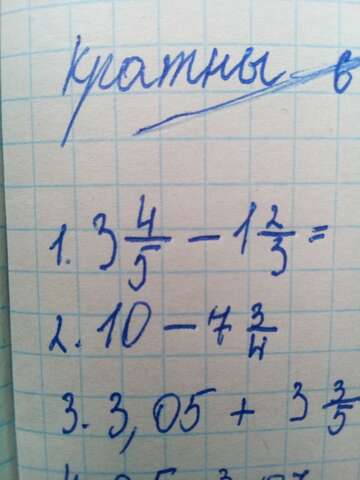 Кратны в
1. 3 4/5 - 1 2/3 =
2. 10 - 7 3/4
3. 3,05 + 3 3/5